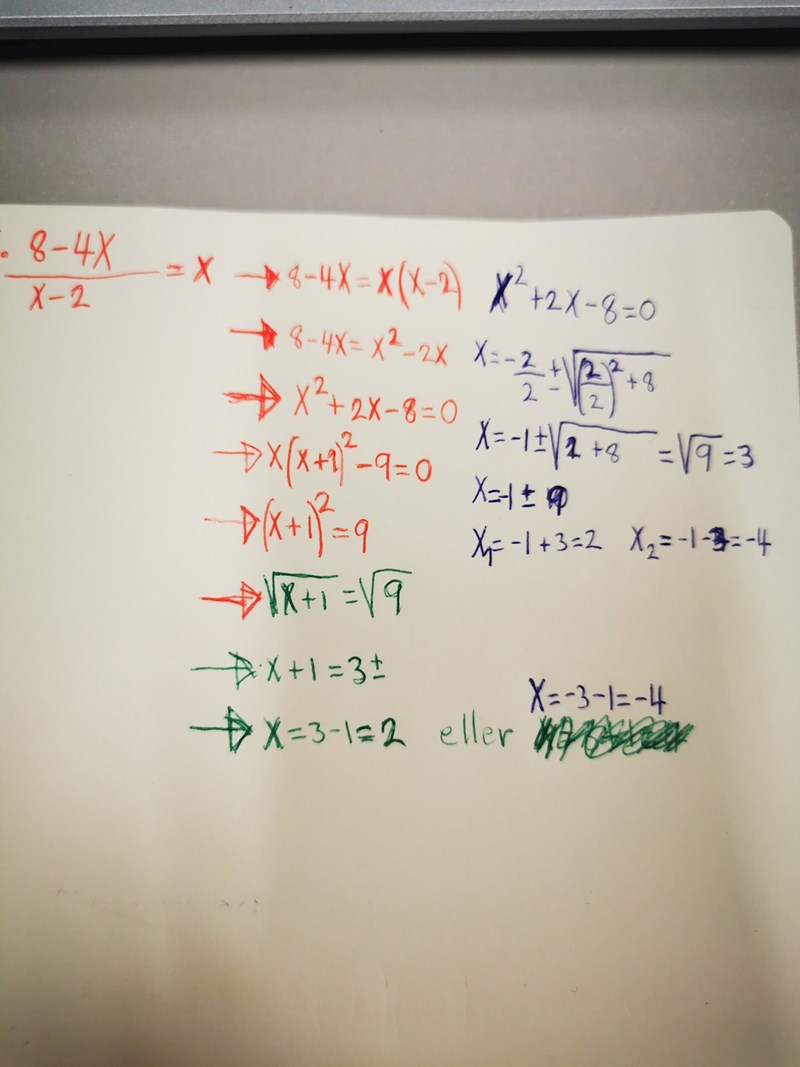 8-4X / X-2 = X → 8-4X = X(X-2)
→ 8-4X = X² - 2X
→ X² + 2X - 8 = 0
→ X(X+1)² - 9 = 0
→ (X+1)² = 9
→ √X+1 = √9
→ X + 1 = 3 ±
→ X = 3 - 1 = 2 eller
X² + 2X - 8 = 0
X = -2/2 ± √(2/2)² + 8
X = -1 ± √1 + 8 = √9 = 3
X = -1 ±
X₁ = -1 + 3 = 2 X₂ = -1 - 3 = -4
X = -3 - 1 = -4